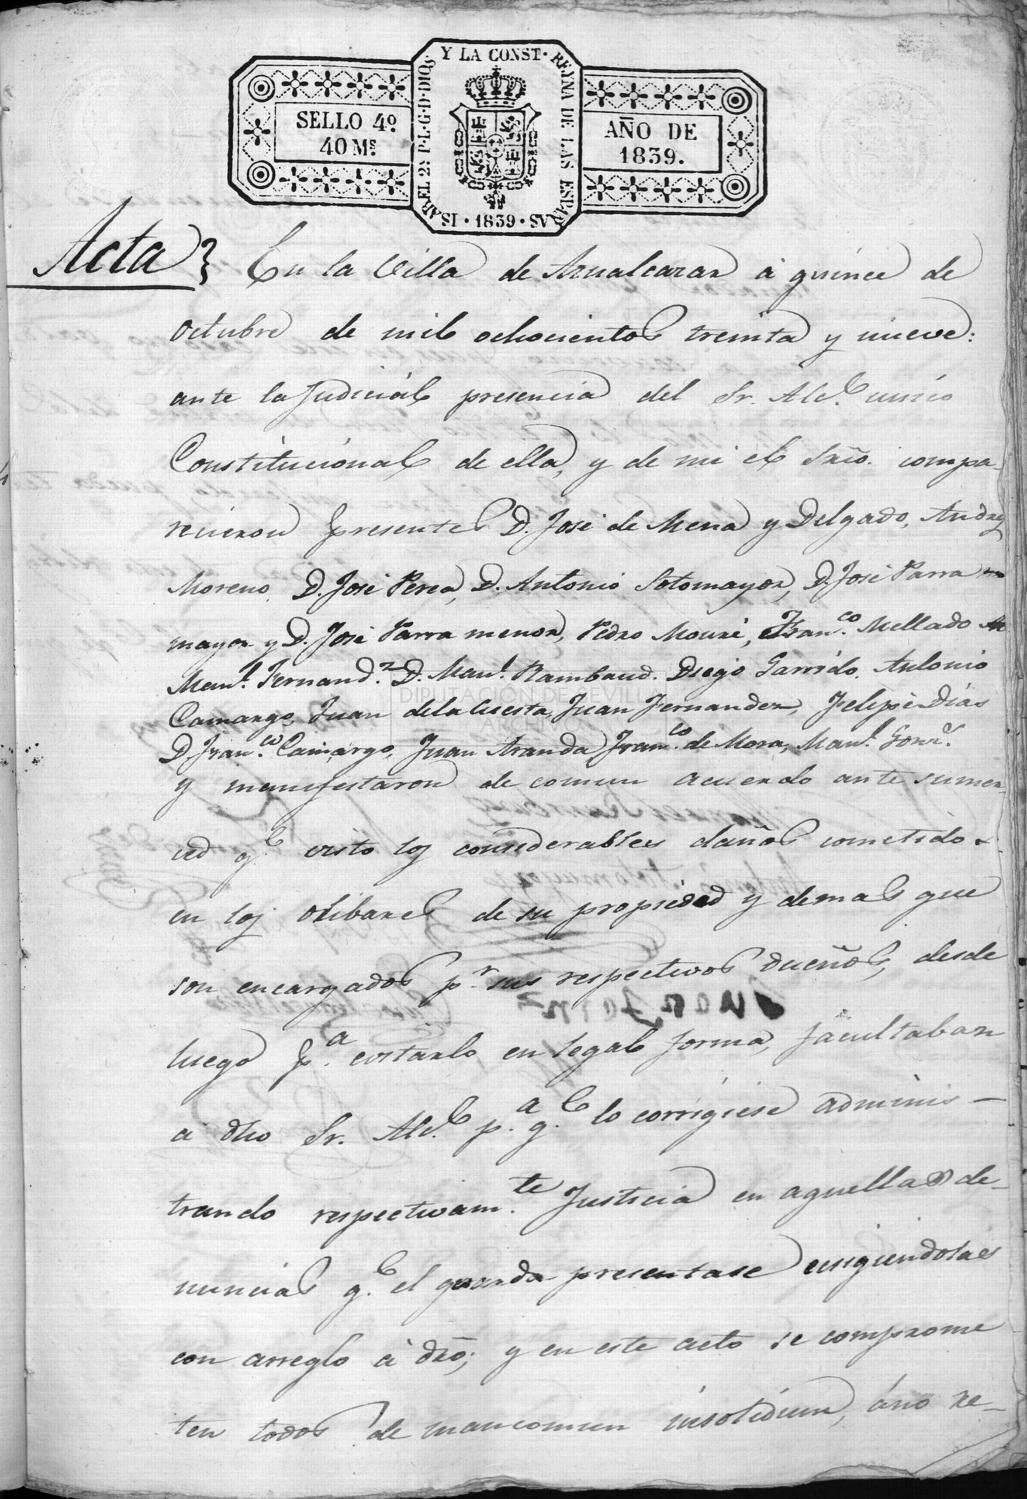 Y LA CONST.
REYNA DE LAS ESPAÑAS
1839
ISABEL 2ª P.L.G.D.DIOS
SELLO 4º
40 Ms.
AÑO DE
1839.
Acta
En la Villa de Aznalcazar à quince de
Octubre de mil ochocientos treinta y nueve:
ante la Judiciál presencia del Sr. Alc.l unico
Constitucional de ella, y de mi el Srio. compa-
recieron presentes D. José de Mena y Delgado, Andres
Moreno, D. José Perea, D. Antonio Sotomayor, D. José Parra
mayor y D. José Parra menor, Pedro Mouré, Fran.co Mellado
Man.l Fernand.z D. Man.l Rambaud. Diego Garrido, Antonio
DIPUTACIÓN DE SEVILLA
Camargo, Juan dela Cuesta, Juan Fernandez, Felipe Días
D. Fran.co Camargo, Juan Aranda Fran.co de Mora, Man.l Gonz.
y manifestaron de comun acuerdo ante sumer-
ced q.e visto los considerables daños cometidos
en los olibares de su propiedad y demas que
son encargados p.r sus respectivos dueños, desde
luego p.a evitarlo en legal forma, facultaban
à dho Sr. Alc.l p.a q.e lo corrigiese adminis-
trando respectivam.te Justicia en aquellas de-
nuncias q.e el guarda presentase exsigiendolas
con arreglo à dro; y en este acto se comprome
ten todos de mancomun insolidum, áno re-